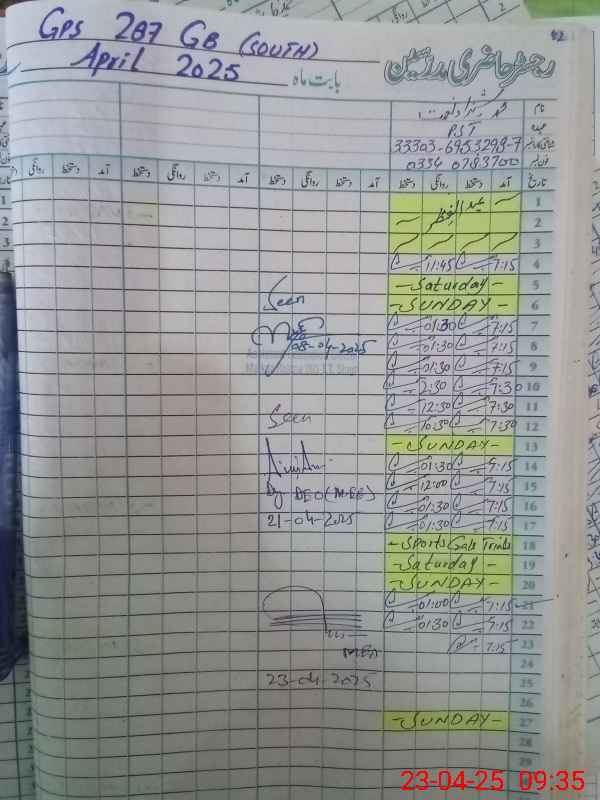 GPS 287 GB (SOUTH)
42
April 2025
بابت ماہ
رجسٹر حاضری مدرسین
نام
عہدہ
P.S.T
33303-6953298-7
0334 0783700
تاریخ آمد دستخط روانگی دستخط آمد دستخط روانگی دستخط آمد دستخط روانگی دستخط آمد دستخط روانگی
1 عید الفطر
2
3
4 7:15 11:45
5 -Saturday-
6 -SUNDAY-
7 7:15 01:30
8 7:15 01:30
9 7:15 01:30
10 7:30 2:30
11 7:30 12:30
12 7:30 10:30
13 -SUNDAY-
14 7:15 01:30
15 7:15 12:00
16 7:15 01:30
17 7:15 01:30
18 -Sports Gala Trials
19 -Saturday-
20 -SUNDAY-
21 7:15 01:00
22 7:15 01:30
23 7:15
24
25
26
27 -SUNDAY-
28
29
Seen
08-04-2025
Seen
Dy DEO (M-EE)
21-04-2025
MEA
23-04-2025
23-04-25 09:35